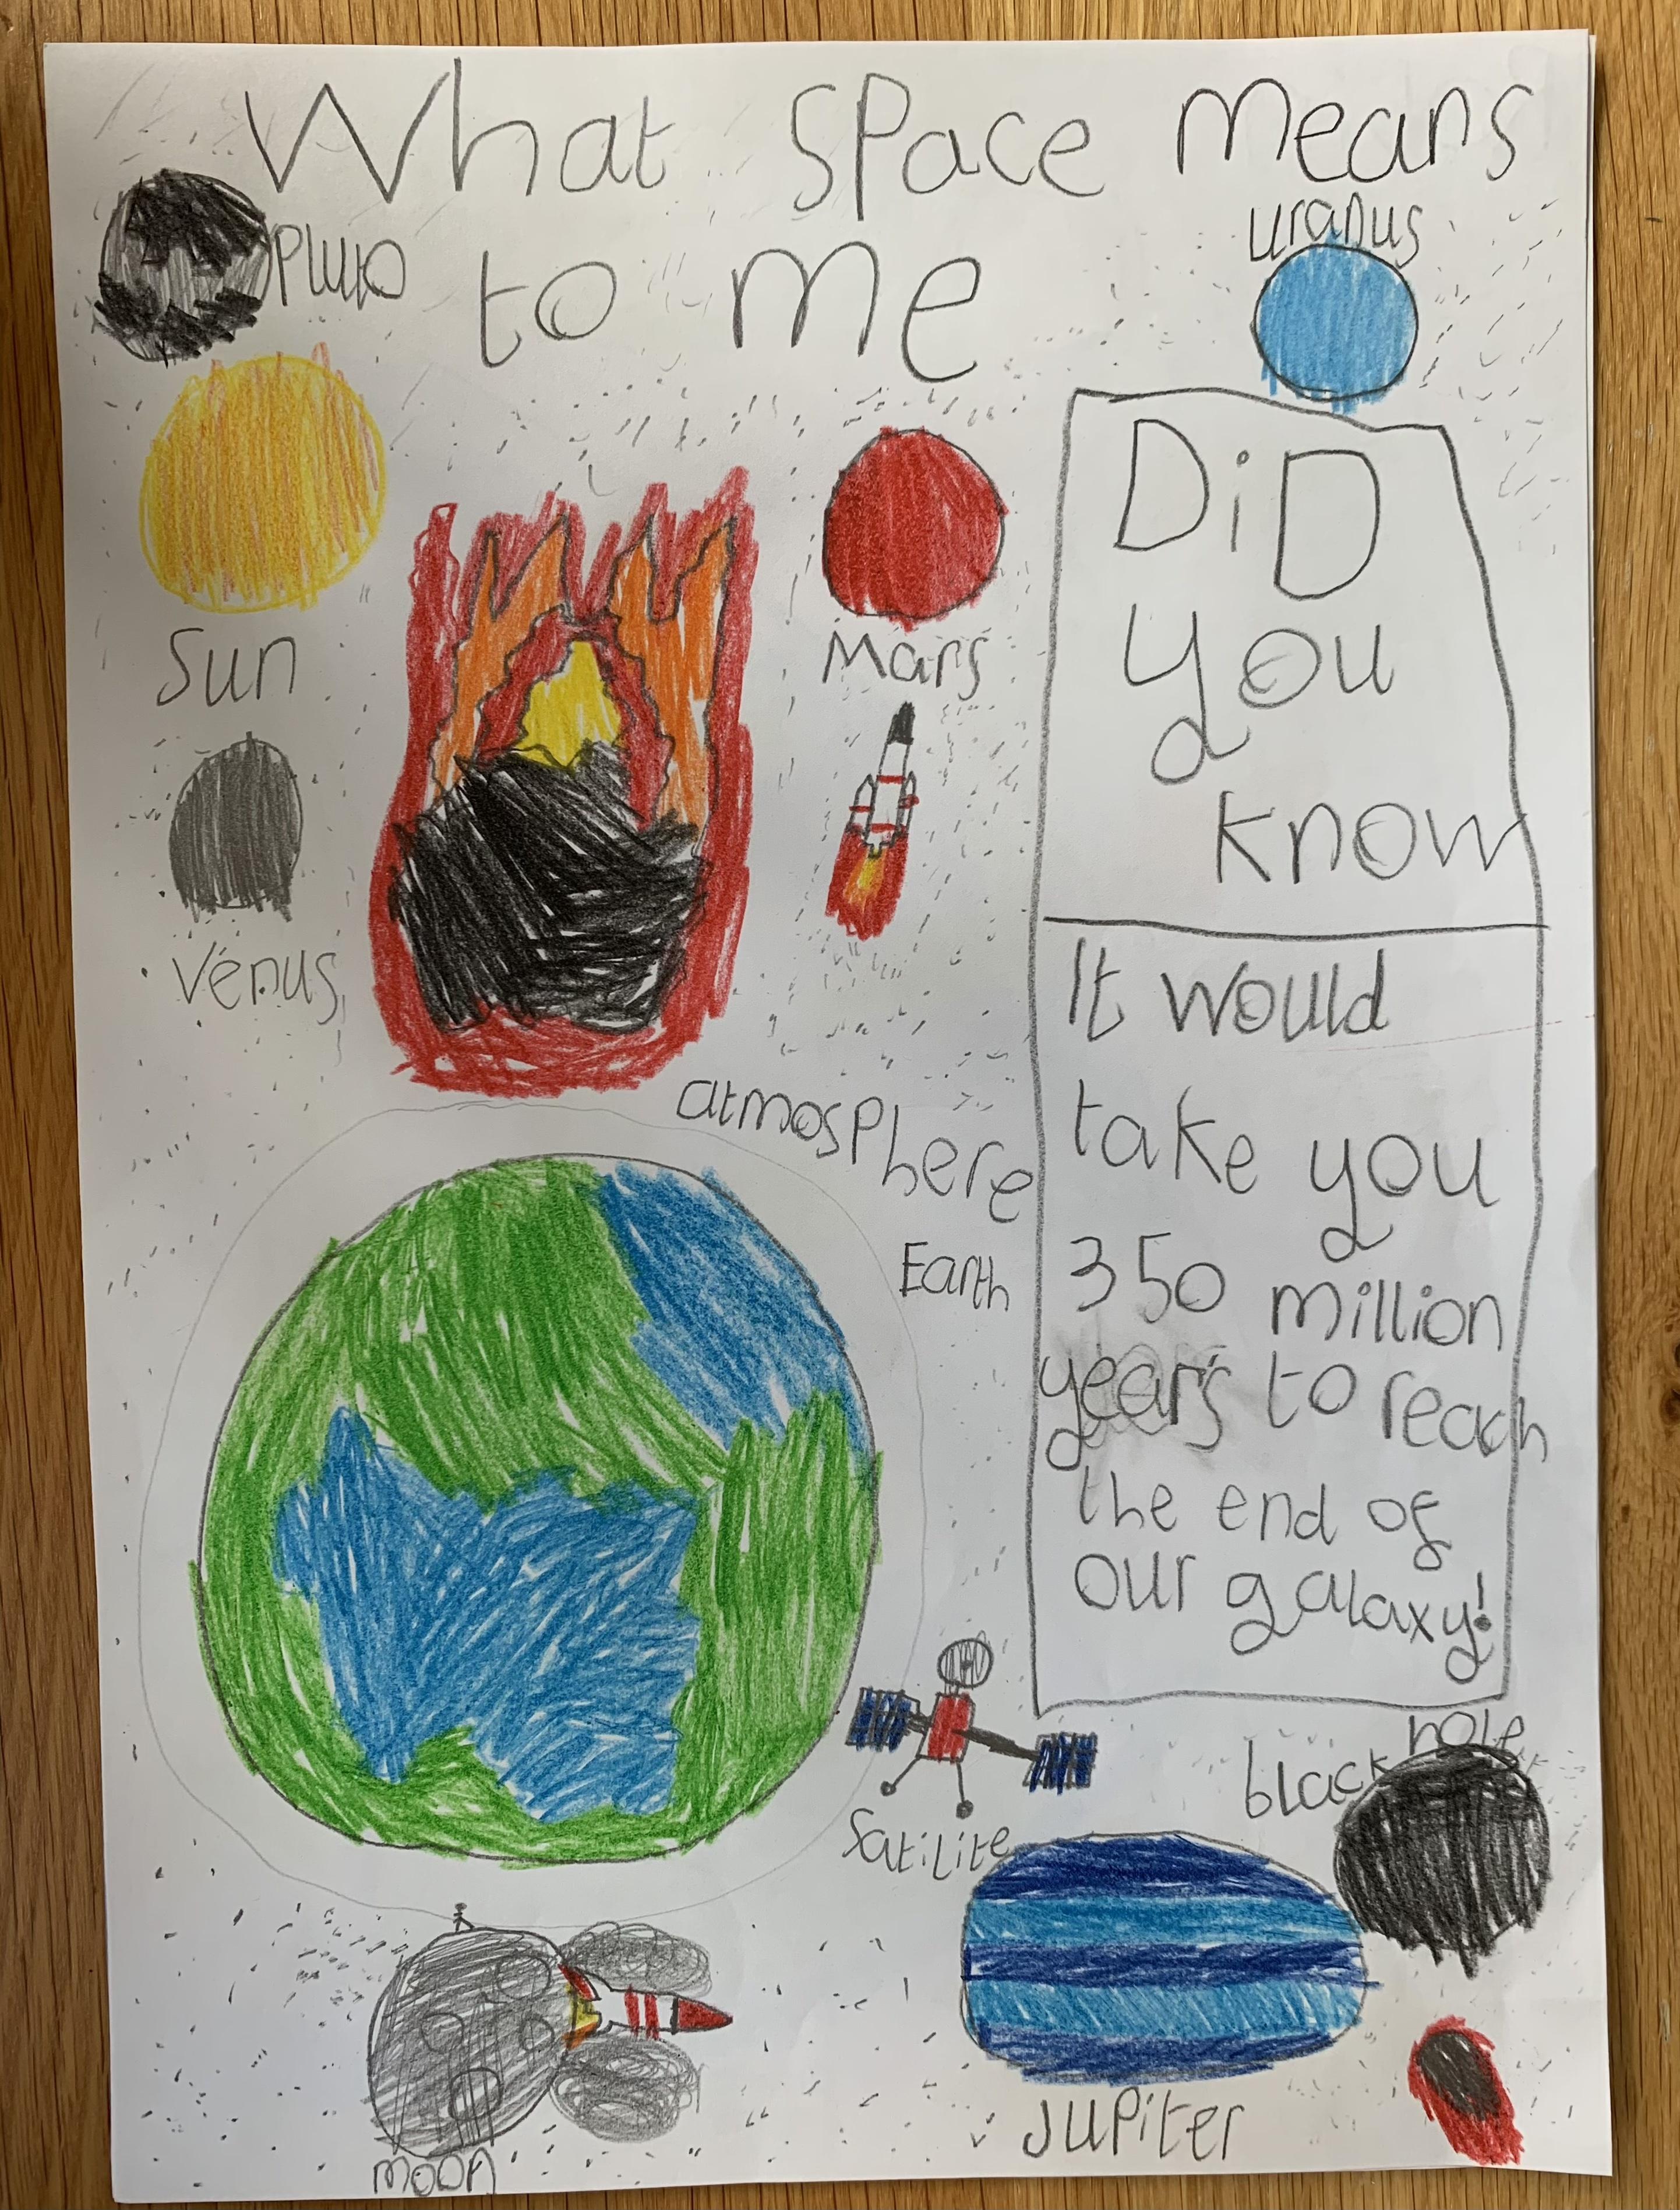 What space means
to me
Pluto
uranus
Sun
Mars
Venus
DiD
you
know
It would
take you
350 million
years to reach
the end of
our galaxy!
atmosphere
Earth
Satilite
black hole
Jupiter
moon